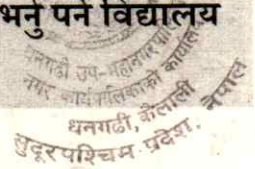 भर्नु पर्ने विद्यालय
धनगढी उप-महानगरपालिका
नगर कार्यपालिकाको कार्यालय
धनगढी, कैलाली
सुदूरपश्चिम प्रदेश, नेपाल